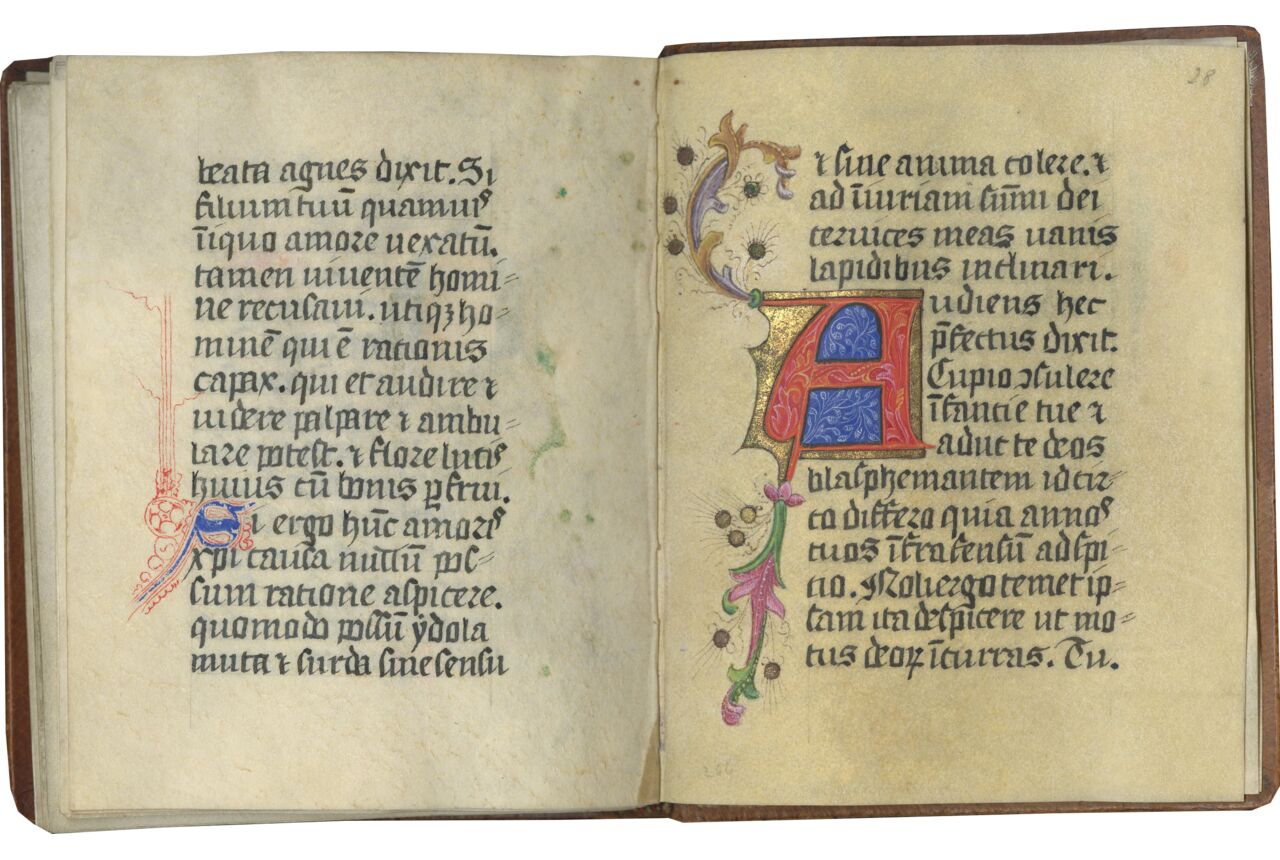 beata agnes dixit. Si
filium tuū quamuis
īiquo amore uexatū.
tamen uiuentē homi⸗
ne recusaui. utiqꝫ ho⸗
minē qui ē rationis
capax. qui et audire ⁊
uidere palpare ⁊ ambu⸗
lare potest. ⁊ flore lucis
huius cū bonis ꝑfrui.
Si ergo hūc amoris
xp̄i causa nullū pos⸗
sum ratione aspicere.
quomodo possū ẏdola
muta ⁊ surda sine sensu
28
⁊ sine anima colere. ⁊
ad īiuriam sūmi dei
ceruices meas uanis
lapidibus inclinari.
Audiens hec
p̄fectus dixit.
Cupio ↄsulere
īfantie tue ⁊
aduc te deos
blasphemantem idcir⸗
co differo quia annos
tuos īfra sensū aspi⸗
cio. Noli ergo temet ip⸗
sam ita despicere ut mo⸗
tus deoꝝ īcurras. Tu.
266